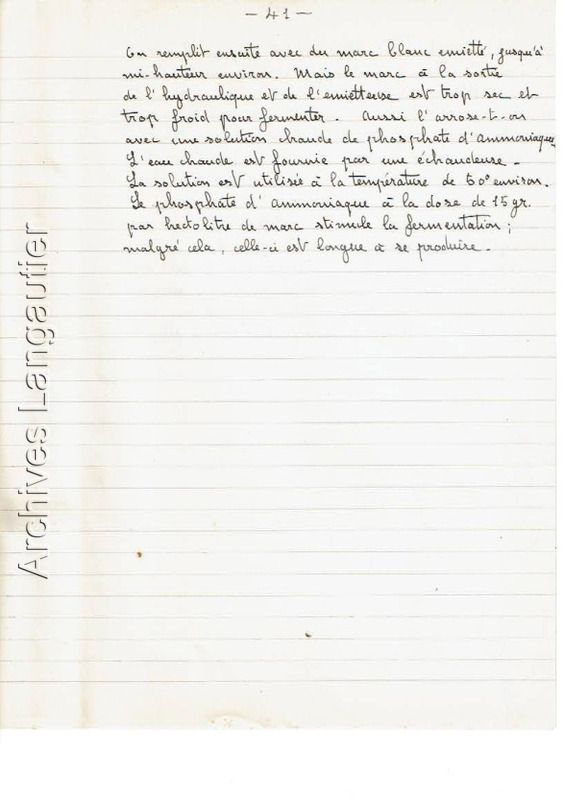 - 41 -
On remplit ensuite avec du marc blanc émietté, jusqu'à
mi-hauteur environ. Mais le marc à la sortie
de l'hydraulique et de l'émietteuse est trop sec et
trop froid pour fermenter. Aussi l'arrose-t-on
avec une solution chaude de phosphate d'ammoniaque
L'eau chaude est fournie par une échaudeuse.
La solution est utilisée à la température de 60° environ.
Le phosphate d'ammoniaque à la dose de 15 gr.
par hectolitre de marc stimule la fermentation ;
malgré cela, celle-ci est longue à se produire.
Archives Langautier